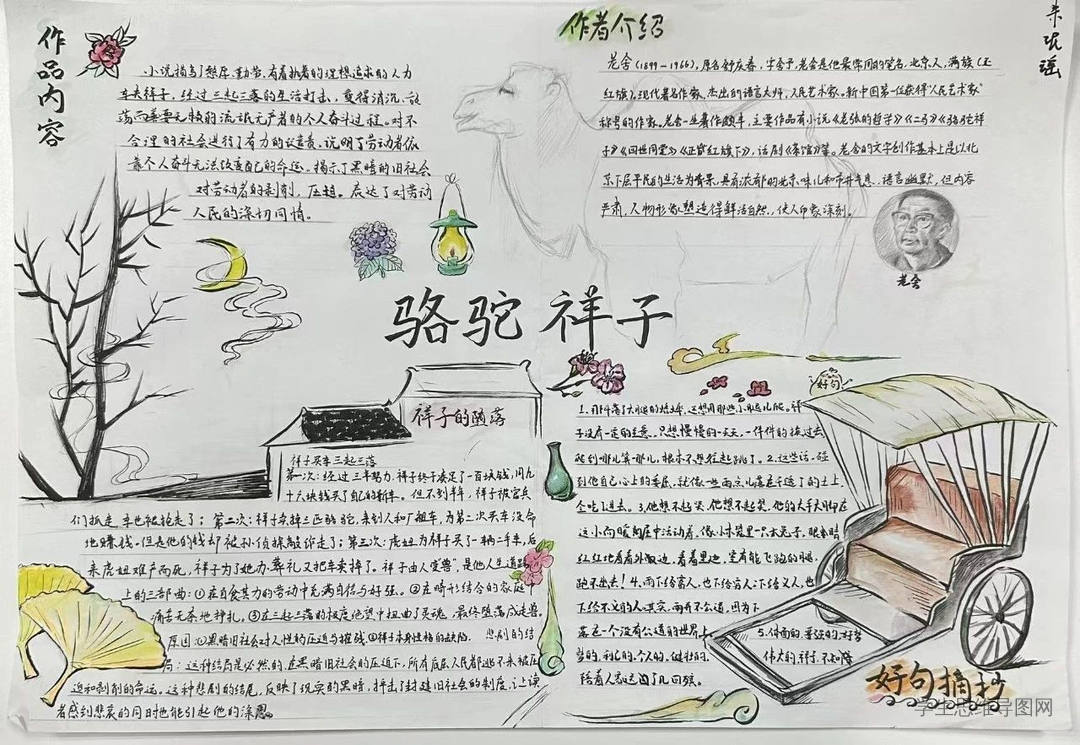 作品内容
小说描写了憨厚、勤劳、有着执着的理想追求的人力
车夫祥子，经过三起三落的生活打击，变得消沉、
荡而丧无赖的流氓无产者的个人奋斗过程。对不
合理的社会进行了有力的谴责，说明了劳动者依
靠个人奋斗无法改变自己的命运。揭示了黑暗的旧社会
对劳动者的剥削，压迫。表达了对劳动
人民的深切同情。
作者介绍
老舍（1899－1966），原名舒庆春，字舍予，老舍是他最常用的笔名，北京人，满族（正
红旗）。现代著名作家、杰出的语言大师，人民艺术家。新中国第一位获得"人民艺术家"
称号的作家。老舍一生著作颇丰，主要作品有小说《老张的哲学》《二马》《骆驼祥
子》《四世同堂》《正红旗下》，话剧《茶馆》等。老舍的文学创作基本上是以北
京下层平民的生活为背景，具有浓郁的北京味儿和市井气息，语言幽默，但内容
严肃，人物形象塑造得鲜活自然，使人印象深刻。
老舍
骆驼祥子
祥子的堕落
祥子买车三起三落
第一次：经过三年努力，祥子终于凑足了一百块钱，用九
十六块钱买了自己的新车。但不到半年，祥子被官兵
们抓走，车也被抢走了；第二次：祥子卖掉三匹骆驼，来到人和厂租车，为第二次买车没命
地赚钱。但是他的钱却被孙侦探敲诈走了；第三次：虎妞为祥子买了一辆二手车，后
来虎妞难产而死，祥子为了她办葬礼又把车卖掉了。祥子由人"变兽"，是他人生道路
上的三部曲：①在自食其力的劳动中充满自信与好强。②在畸形结合的家庭中
痛苦无奈地挣扎，③在三起三落的极度绝望中扭曲了灵魂，最终堕落成走兽。
原因：①黑暗旧社会对人性的压迫与摧残②祥子本身性格的缺陷。悲剧的结
局：这种结局是必然的。在黑暗旧社会的压迫下，所有底层人民都逃不来被压
迫和剥削的命运。这种悲剧的结尾，反映了现实的黑暗，抨击了封建旧社会的制度，让读
者感到悲哀的同时也能引起他的深思。
好句
子没有一定的主意，只想慢慢的一天天，一件件的挨过去，
爬到哪儿算哪儿，根本不想往起跳了。2.这些话，碰
到他自己心上的委屈，就像一些雨点儿落在干透了的土上，
全吃了进去。3.他想不起哭，他想不起笑，他的大手大脚在
这小而暖的屋中活动着，像小木笼里一只大兔子，眼睛
红红地看着外边，看着里边，空有能飞跑的腿，
跑不出去！4.雨下给富人，也下给穷人；下给义人，也
下给不义的人。其实，雨并不公道，因为下
落在一个没有公道的世界上。
5.体面的，要强的，好梦
想的，利己的，个人的，健壮的，
伟大的，祥子，不知陪
陪着人家送了几回殡。
好句摘抄
学生思维导图网